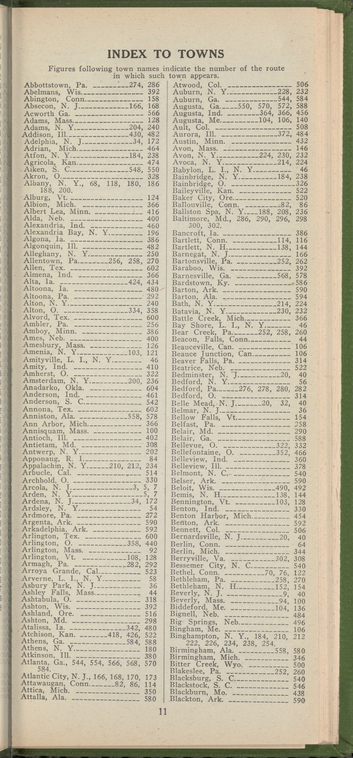 INDEX TO TOWNS
Figures following town names indicate the number of the route
in which such town appears.
Abbottstown, Pa. 274, 286
Abelmans, Wis. 392
Abington, Conn. 158
Absecon, N. J. 166, 168
Acworth Ga. 566
Adams, Mass. 128
Adams, N. Y. 204, 240
Addison, Ill. 430, 482
Adelphia, N. J. 34, 172
Adrian, Mich. 464
Afton, N. Y. 184, 238
Agricola, Kan. 474
Aiken, S. C. 548, 550
Akron, O. 328
Albany, N. Y., 68, 118, 180, 186
188, 200.
Alburg, Vt. 124
Albion, Mich. 366
Albert Lea, Minn. 416
Alda, Neb. 400
Alexandria, Ind. 460
Alexandria Bay, N. Y. 196
Algona, Ia. 386
Algonquin, Ill. 482
Alleghany, N. Y. 250
Allentown, Pa. 256, 258, 270
Allen, Tex. 602
Almena, Ind. 366
Alta, Ia. 424, 434
Altoona, Ia. 480
Altoona, Pa. 292
Alton, N. Y. 240
Alton, O. 334, 358
Alvord, Tex. 600
Ambler, Pa. 256
Amboy, Minn. 386
Ames, Neb. 400
Amesbury, Mass. 126
Amenia, N. Y. 103, 121
Amityville, L. I., N. Y. 46
Amity, Ind. 410
Amherst, O. 322
Amsterdam, N. Y. 200, 236
Anadarko, Okla. 604
Anderson, Ind. 461
Anderson, S. C. 542
Annona, Tex. 602
Anniston, Ala. 558, 578
Ann Arbor, Mich. 366
Annisquam, Mass. 100
Antioch, Ill. 402
Antietam, Md. 308
Antwerp, N. Y. 202
Apponaug, R. I. 84
Appalachin, N. Y. 210, 212, 234
Arbucle, Cal. 514
Archbold, O. 330
Arcola, N. J. 3, 5, 7
Arden, N. Y. 5, 7
Ardena, N. J. 34, 172
Ardsley, N. Y. 54
Ardmore, Pa. 272
Argenta, Ark. 590
Arkadelphia, Ark. 592
Arlington, Tex. 600
Arlington, O. 358, 440
Arlington, Mass. 92
Arlington, Vt. 108, 128
Armagh, Pa. 282, 292
Arroya Grande, Cal. 523
Arverne, L. I., N. Y. 58
Asbury Park, N. J. 36
Ashley Falls, Mass. 44
Ashtabula, O. 318
Ashton, Wis. 392
Ashland, Ore. 516
Ashton, Md. 298
Atalissa, Ia. 342, 480
Atchison, Kan. 418, 426, 522
Athens, Ga. 584, 588
Athens, N. Y. 180
Atkinson, Ill. 380
Atlanta, Ga., 544, 554, 566, 568, 570
584.
Atlantic City, N. J., 166, 168, 170, 173
Attawaugan, Conn. 82, 86, 114
Attica, Mich. 350
Attalla, Ala. 580
Atwood, Col. 506
Auburn, N. Y. 228, 232
Auburn, Ga. 544, 584
Augusta, Ga. 550, 570, 572, 588
Augusta, Ind. 364, 366, 456
Augusta, Me. 104, 106, 140
Ault, Col. 508
Aurora, Ill. 372, 484
Austin, Minn. 432
Avon, Mass. 146
Avon, N. Y. 224, 230, 232
Avoca, N. Y. 214, 224
Babylon, L. I., N. Y. 46
Bainbridge, N. Y. 184, 238
Bainbridge, O. 326
Baileyville, Kan. 522
Baker City, Ore. 520
Ballouville, Conn. 82, 86
Ballston Spa, N. Y. 188, 208, 236
Baltimore, Md., 286, 290, 296, 298
300, 302.
Bancroft, Ia. 386
Bartlett, Conn. 114, 116
Bartlett, N. H. 138, 144
Barnegat, N. J. 166
Bartonsville, Pa. 252, 262
Baraboo, Wis. 392
Barnesville, Ga. 568, 578
Bardstown, Ky. 586
Barton, Ark. 590
Barton, Ala. 594
Bath, N. Y. 214, 224
Batavia, N. Y. 230, 232
Battle Creek, Mich. 366
Bay Shore, L. I., N. Y. 46
Bear Creek, Pa. 252, 258, 260
Beacon, Falls, Conn. 44
Beauceville, Can. 106
Beauce Junction, Can. 106
Beaver Falls, Pa. 314
Beatrice, Neb. 522
Bedminster, N. J. 20, 40
Bedford, N. Y. 56
Bedford, Pa. 276, 278, 280, 282
Bedford, O. 314
Belle Mead, N. J. 20, 32, 40
Belmar, N. J. 36
Bellow Falls, Vt. 154
Belfast, Pa. 258
Belair, Md. 290
Belair, Ga. 588
Bellevue, O. 322, 332
Bellefontaine, O. 352, 466
Belleview, Ind. 360
Belleview, Ill. 378
Belmont, N. C. 540
Belser, Ark. 590
Beloit, Wis. 490, 492
Bemis, N. H. 138, 144
Bennington, Vt. 103, 128
Benton, Ind. 330
Benton Harbor, Mich. 454
Benton, Ark. 592
Bennett, Col. 506
Bernardsville, N. J. 20, 40
Berlin, Conn. 64
Berlin, Mich. 344
Berryville, Va. 302, 308
Bessemer City, N. C. 540
Bethel, Conn. 70, 76, 122
Bethleham, Pa. 258, 270
Bethlehem, N. H. 152, 154
Beverly, N. J. 9, 40
Beverly, Mass. 94, 100
Biddeford, Me. 104, 136
Bignell, Neb. 484
Big Springs, Neb. 496
Bingham, Me. 106
Binghampton, N. Y., 184, 210, 212
222, 226, 234, 238, 254.
Birmingham, Ala. 558, 580
Birmingham, Mich. 346
Bitter Creek, Wyo. 500
Blakeslee, Pa. 252, 260
Blacksburg, S. C. 540
Blackstock, S. C. 540
Blackburn, Mo. 438
Blackton, Ark. 590
11